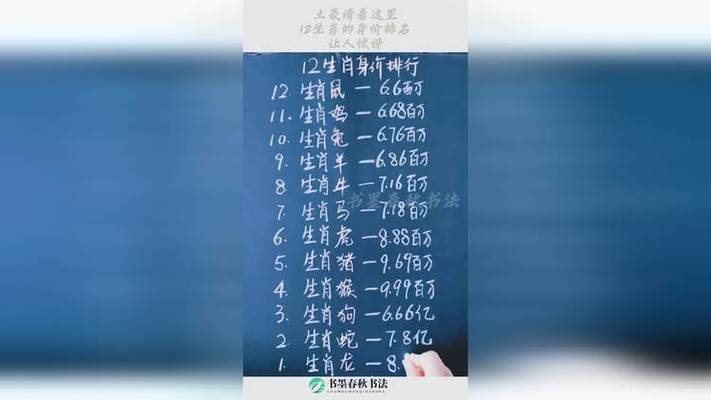 土豪请看这里
12生肖的身价排名
让人惊讶
12生肖身价排行
12. 生肖鼠—6.6百万
11. 生肖鸡—6.68百万
10. 生肖兔—6.76百万
9. 生肖羊—6.86百万
8. 生肖牛—7.16百万
书墨春秋书法
7. 生肖马—7.18百万
6. 生肖虎—8.88百万
5. 生肖猪—9.69百万
4. 生肖猴—9.99百万
3. 生肖狗—6.66亿
2. 生肖蛇—7.8亿
1. 生肖龙—8.
书墨春秋书法